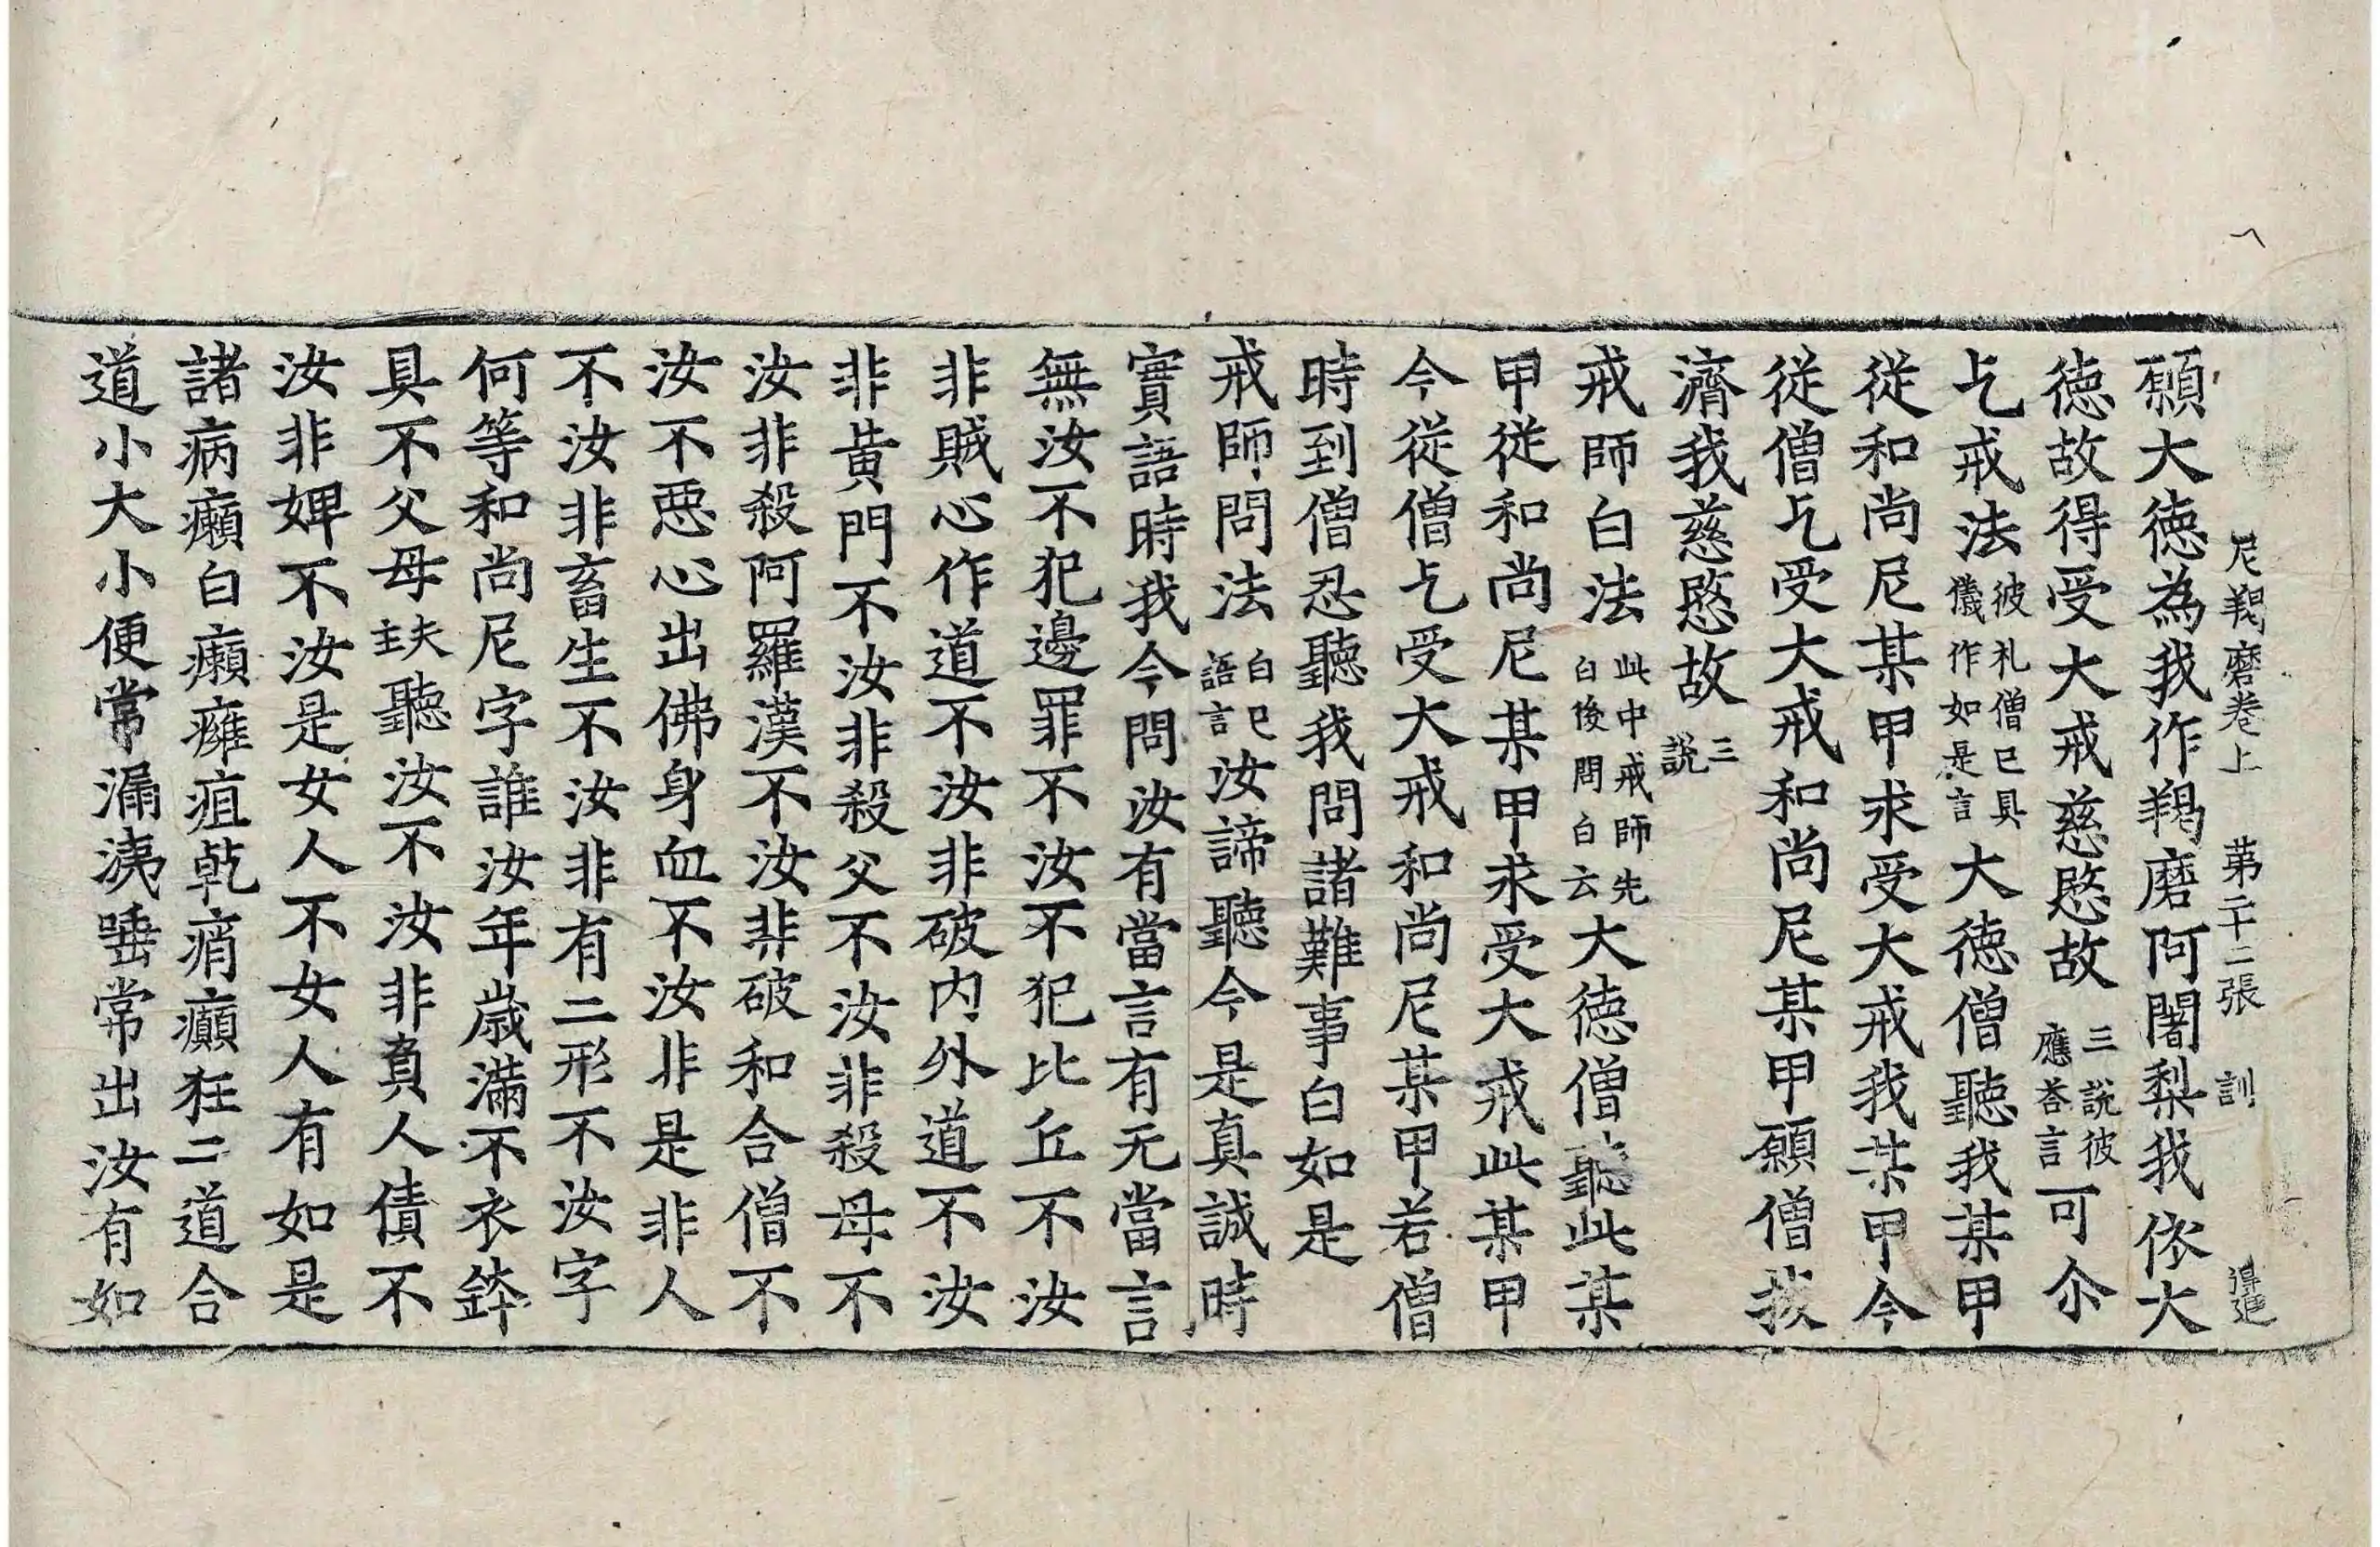 尼羯磨卷上 第二十二張 訓
願大德為我作羯磨阿闍梨我依大
德故得受大戒慈愍故三說彼應荅言可尒
乞戒法彼礼僧已具儀作如是言大德僧聽我某甲
從和尚尼某甲求受大戒我某甲今
從僧乞受大戒和尚尼某甲願僧拔
濟我慈愍故三說
戒師白法此中戒師先白後問白云大德僧聽此某
甲從和尚尼某甲求受大戒此某甲
今從僧乞受大戒和尚尼某甲若僧
時到僧忍聽我問諸難事白如是
戒師問法白已語言汝諦聽今是真誠時
實語時我今問汝有當言有无當言
無汝不犯邊罪不汝不犯比丘不汝
非賊心作道不汝非破内外道不汝
非黃門不汝非殺父不汝非殺母不
汝非殺阿羅漢不汝非破和合僧不
汝不惡心出佛身血不汝非是非人
不汝非畜生不汝非有二形不汝字
何等和尚尼字誰汝年歲滿不衣鉢
具不父母夫主聽汝不汝非負人債不
汝非婢不汝是女人不女人有如是
諸病癩白癩癰疽乾痟癲狂二道合
道小大小便常漏洟唾常出汝有如